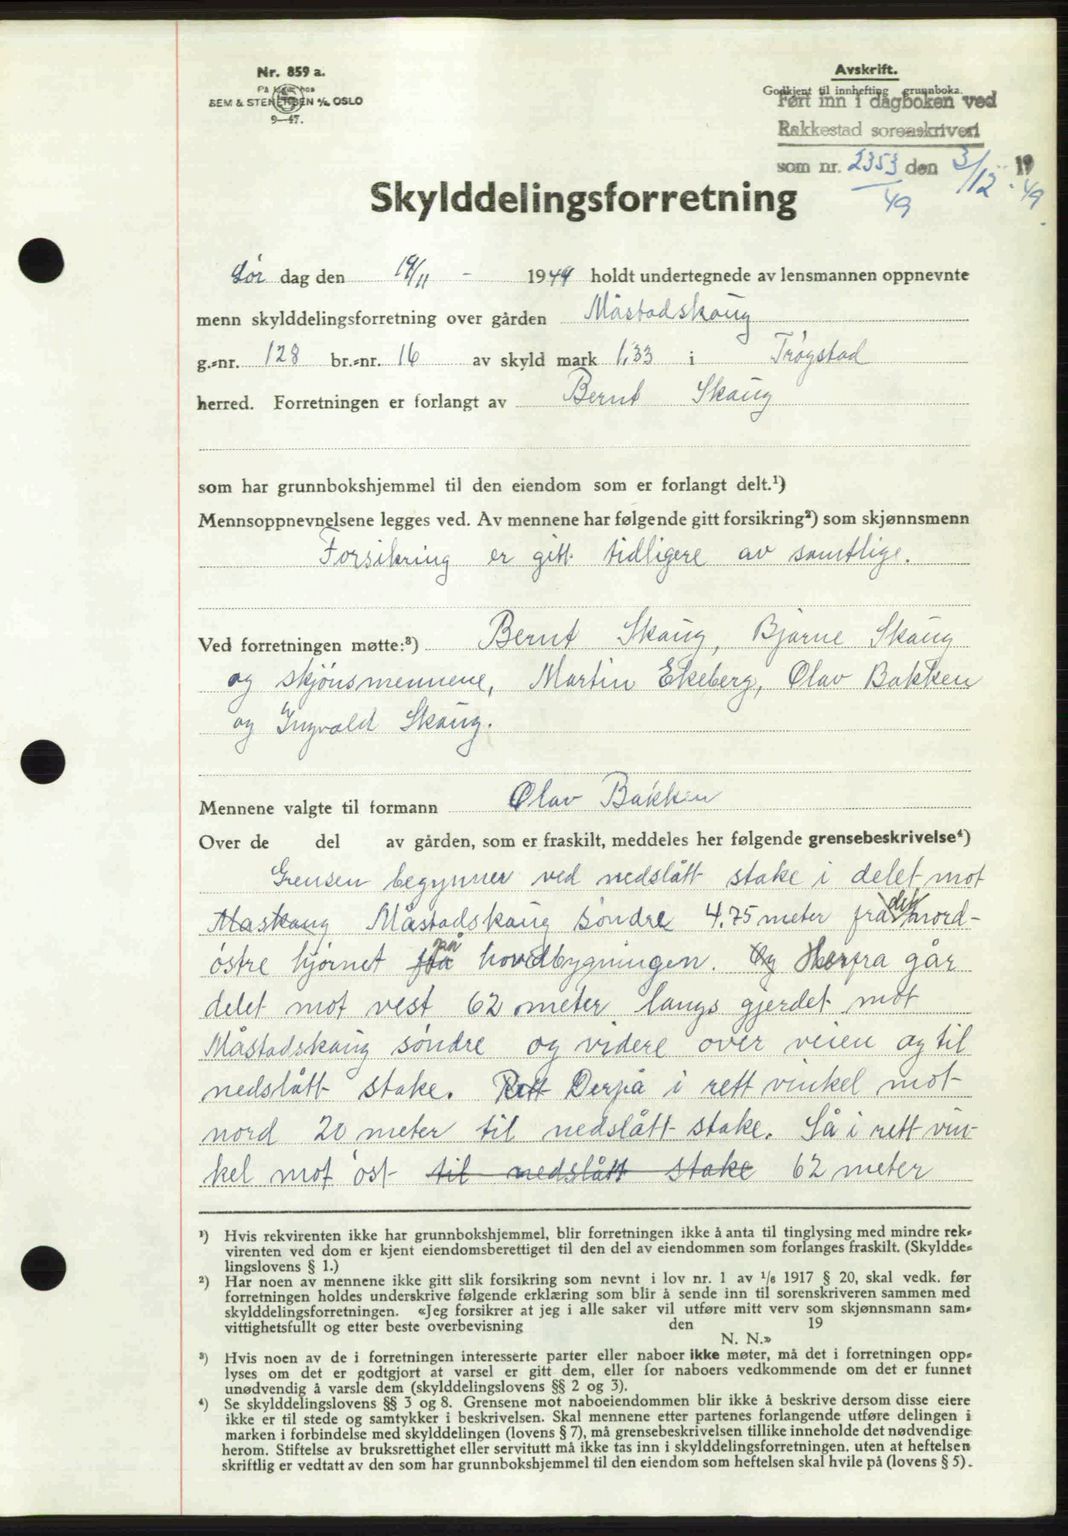 Nr. 859 a.
På lager hos
SEM & STENERSEN A/S OSLO
9—47.
Avskrift.
Godkjent til innhefting grunnboka.
Ført inn i dagboken ved
Rakkestad sorenskriveri
som nr. 2353/49 den 3/12 - 1949.
Skylddelingsforretning
Lør dag den 19/11 - 1949 holdt undertegnede av lensmannen oppnevnte
menn skylddelingsforretning over gården Måstadskaug
g.-nr. 128 br.-nr. 16 av skyld mark 1,33 i Trøgstad
herred. Forretningen er forlangt av Bernt Skaug
som har grunnbokshjemmel til den eiendom som er forlangt delt.¹)
Mennsoppnevnelsene legges ved. Av mennene har følgende gitt forsikring²) som skjønnsmenn
Forsikring er gitt tidligere av samtlige.
Ved forretningen møtte:³) Bernt Skaug, Bjarne Skaug
og skjönsmennene, Martin Ekeberg, Olav Bakken
og Ingvald Skaug.
Mennene valgte til formann Olav Bakken
Over de del av gården, som er fraskilt, meddeles her følgende grensebeskrivelse⁴)
Grensen begynner ved nedslått stake i delet mot
Maskaug Måstadskaug søndre 4.75 meter fra det nord-
østre hjørnet på hovedbygningen. Og Herfra går
delet mot vest 62 meter langs gjerdet mot
Måstadskaug søndre og videre over veien og til
nedslått stake. Rett Derpå i rett vinkel mot
nord 20 meter til nedslått stake. Så i rett vin-
kel mot øst til nedslått stake 62 meter
¹) Hvis rekvirenten ikke har grunnbokshjemmel, blir forretningen ikke å anta til tinglysing med mindre rek-
virenten ved dom er kjent eiendomsberettiget til den del av eiendommen som forlanges fraskilt. (Skyldde-
lingslovens § 1.)
²) Har noen av mennene ikke gitt slik forsikring som nevnt i lov nr. 1 av 1/6 1917 § 20, skal vedk. før
forretningen holdes underskrive følgende erklæring som blir å sende inn til sorenskriveren sammen med
skylddelingsforretningen. «Jeg forsikrer at jeg i alle saker vil utføre mitt verv som skjønnsmann sam-
vittighetsfullt og etter beste overbevisning den 19
N. N.»
³) Hvis noen av de i forretningen interesserte parter eller naboer ikke møter, må det i forretningen opp-
lyses om det er godtgjort at varsel er gitt dem, eller for naboers vedkommende om det er funnet
unødvendig å varsle dem (skylddelingslovens §§ 2 og 3).
⁴) Se skylddelingslovens §§ 3 og 8. Grensene mot naboeiendommen blir ikke å beskrive dersom disse eiere
ikke er til stede og samtykker i beskrivelsen. Skal mennene etter partenes forlangende utføre delingen i
marken i forbindelse med skylddelingen (lovens § 7), må grensebeskrivelsen tillike inneholde det nødvendige
herom. Stiftelse av bruksrettighet eller servitutt må ikke tas inn i skylddelingsforretningen, uten at heftelsen
skriftlig er vedtatt av den som har grunnbokshjemmel til den eiendom som heftelsen skal hvile på (lovens § 5).